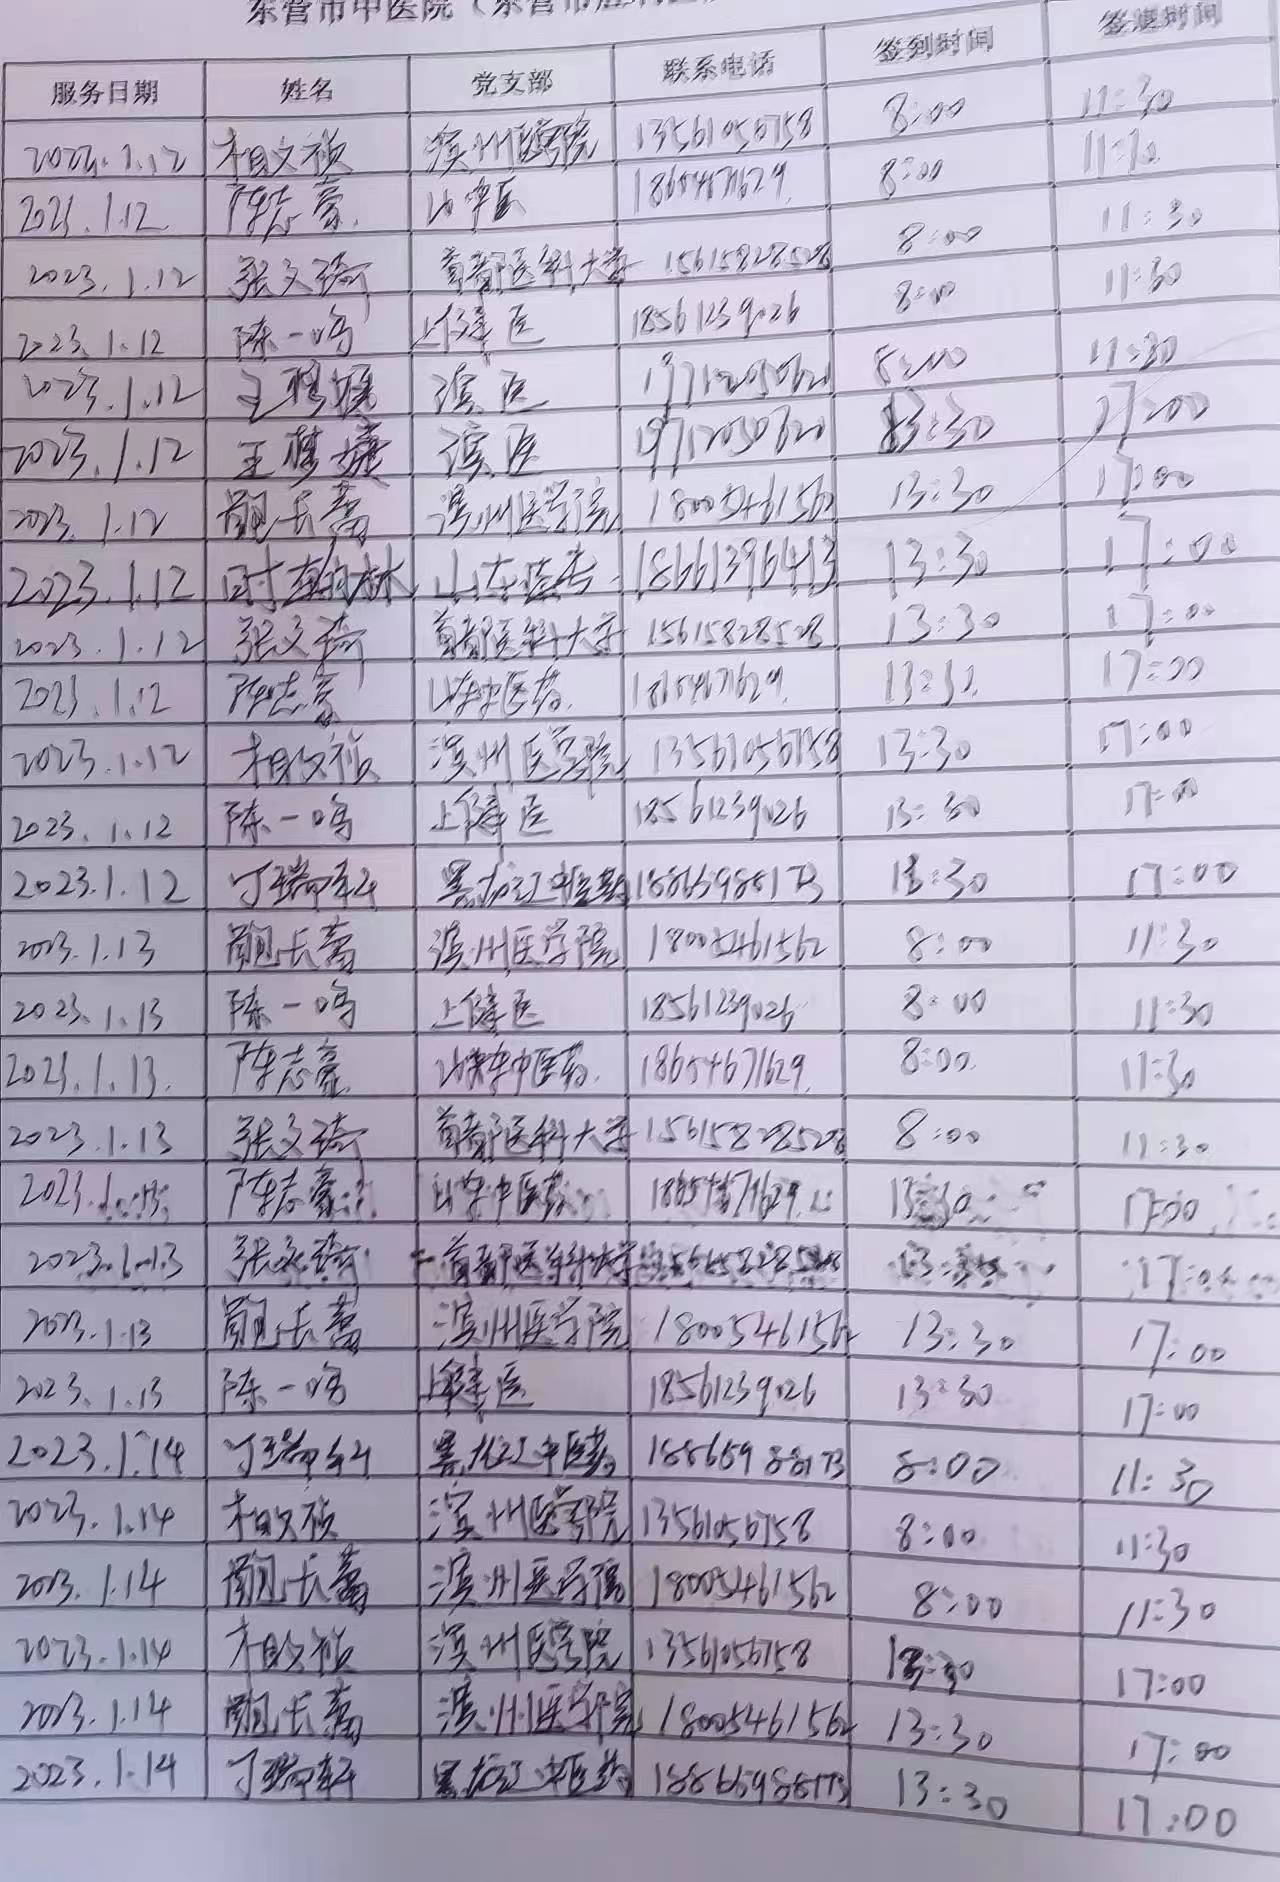 东营市中医院（东营市
服务日期 姓名 党支部 联系电话 签到时间 签退时间
2022.1.12 相文祯 滨州医学院 13561056758 8:00 11:30
2023.1.12 陈志豪 山中医 18654671629 8:00 11:30
2023.1.12 张文琦 首都医科大学 15615828528 8:00 11:30
2023.1.12 陈一鸣 上健医 18561239026 8:00 11:30
2023.1.12 王梦婕 滨医 19712050620 8:00 11:30
2023.1.12 王梦婕 滨医 19712050620 13:30 17:00
2023.1.12 长 滨州医学院 18005461562 13:30 17:00
2023.1.12 时 林 山东医专 18661396413 13:30 17:00
2023.1.12 张文琦 首都医科大学 15615828528 13:30 17:00
2023.1.12 陈志豪 山东中医药 18654671629 13:30 17:00
2023.1.12 相文祯 滨州医学院 13561056758 13:30 17:00
2023.1.12 陈一鸣 上健医 18561239026 13:30 17:00
2023.1.12 丁瑞轩 黑龙江中医药 18866988173 13:30 17:00
2023.1.13 长 滨州医学院 18005461562 8:00 11:30
2023.1.13 陈一鸣 上健医 18561239026 8:00 11:30
2023.1.13. 陈志豪 山东中医药 18654671629 8:00 11:30
2023.1.13 张文琦 首都医科大学 15615828528 8:00 11:30
2023.1.13 陈志豪 山东中医药 18654671629 13:30 17:00
2023.1.13 张文琦 首都医科大学 15615828528 13:30 17:00
2023.1.13 长 滨州医学院 18005461562 13:30 17:00
2023.1.13 陈一鸣 上健医 18561239026 13:30 17:00
2023.1.14 丁瑞轩 黑龙江中医药 18866988173 8:00 11:30
2023.1.14 相文祯 滨州医学院 13561056758 8:00 11:30
2023.1.14 长 滨州医学院 18005461562 8:00 11:30
2023.1.14 相文祯 滨州医学院 13561056758 13:30 17:00
2023.1.14 长 滨州医学院 18005461562 13:30 17:00
2023.1.14 丁瑞轩 黑龙江中医药 18866988173 13:30 17:00